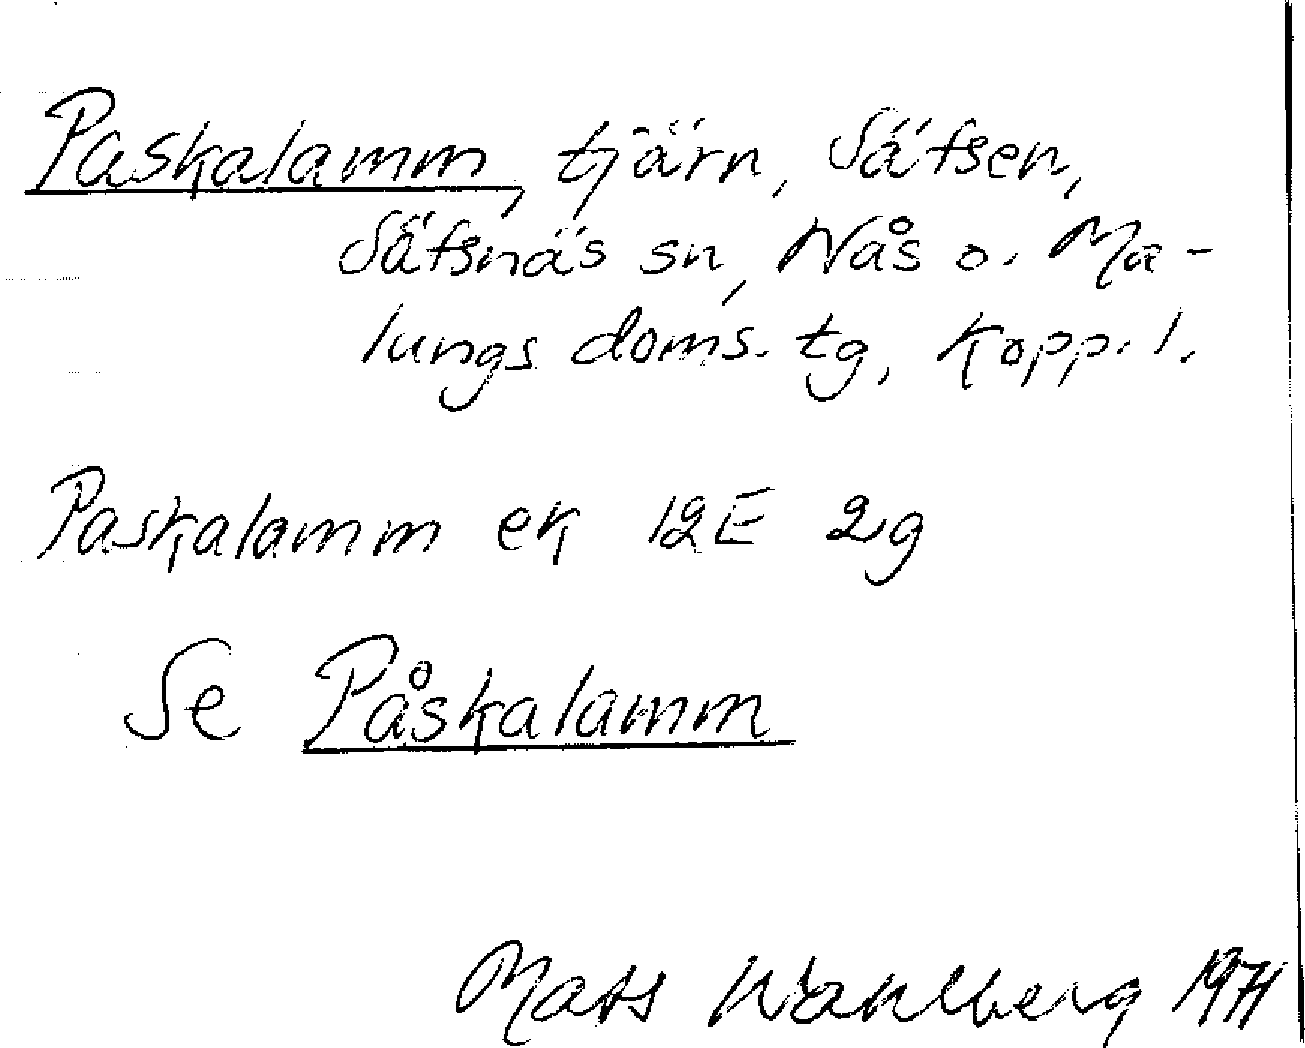 Paskalamm, tjärn, Säfsen,
Säfsnäs sn, Nås o. Ma-
lungs doms. tg, Kopp. l.
Paskalamm ek 12E 2g
Se Påskalamm
Mats Wahlberg 1971